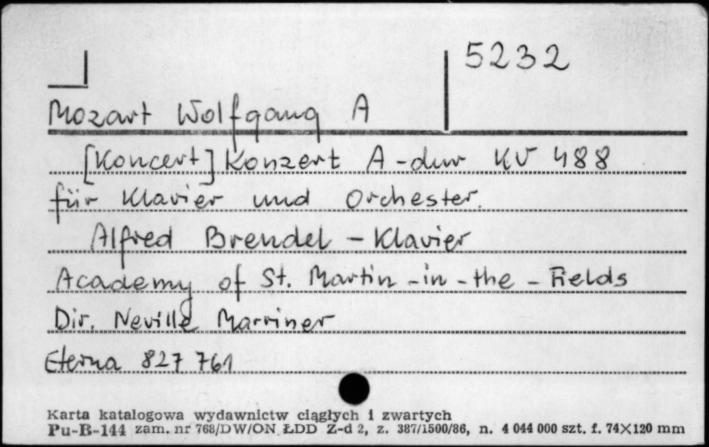 5232
Mozart Wolfgang A
[Koncert] Konzert A-dur KV 488
für Klavier und Orchester.
Alfred Brendel – Klavier
Academy of St. Martin-in-the-Fields
Dir. Neville Marriner
Eterna 827 761
Karta katalogowa wydawnictw ciągłych i zwartych
Pu-B-144 zam. nr 768/DW/ON ŁDD Z-d 2, z. 387/1500/86, n. 4 044 000 szt. f. 74×120 mm